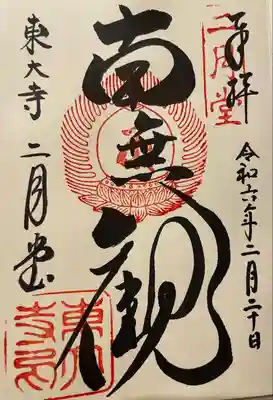 奉拝
二月堂
令和六年二月二十日
南無観
東大寺 二月堂